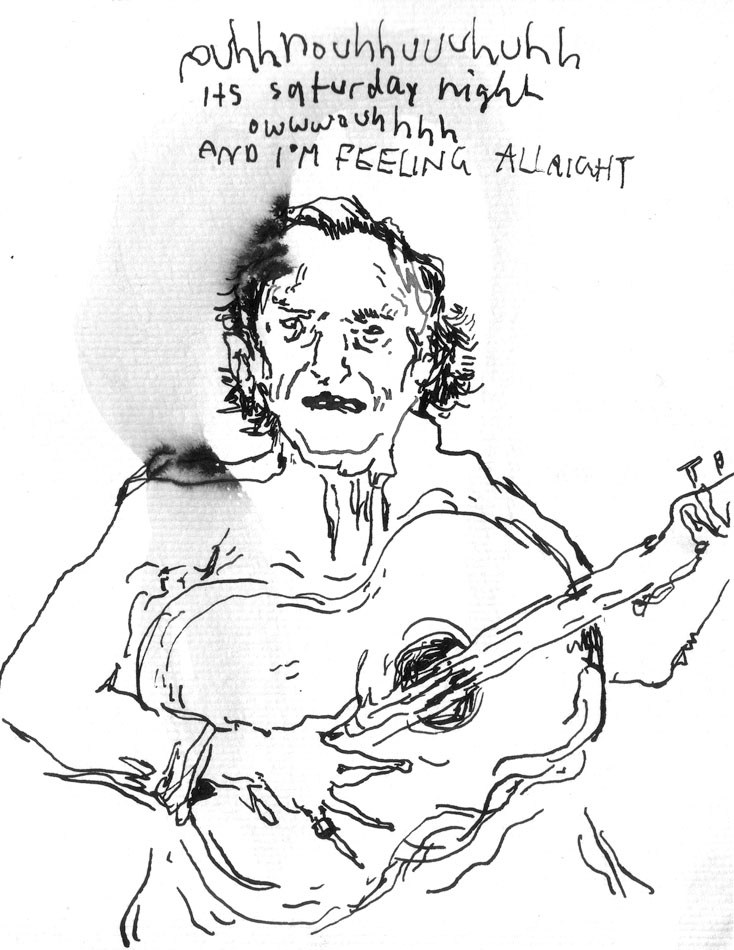 ouhhnouhhuuuhuhh
its saturday night
owwwouhhhh
AND I'M FEELING ALLRIGHT